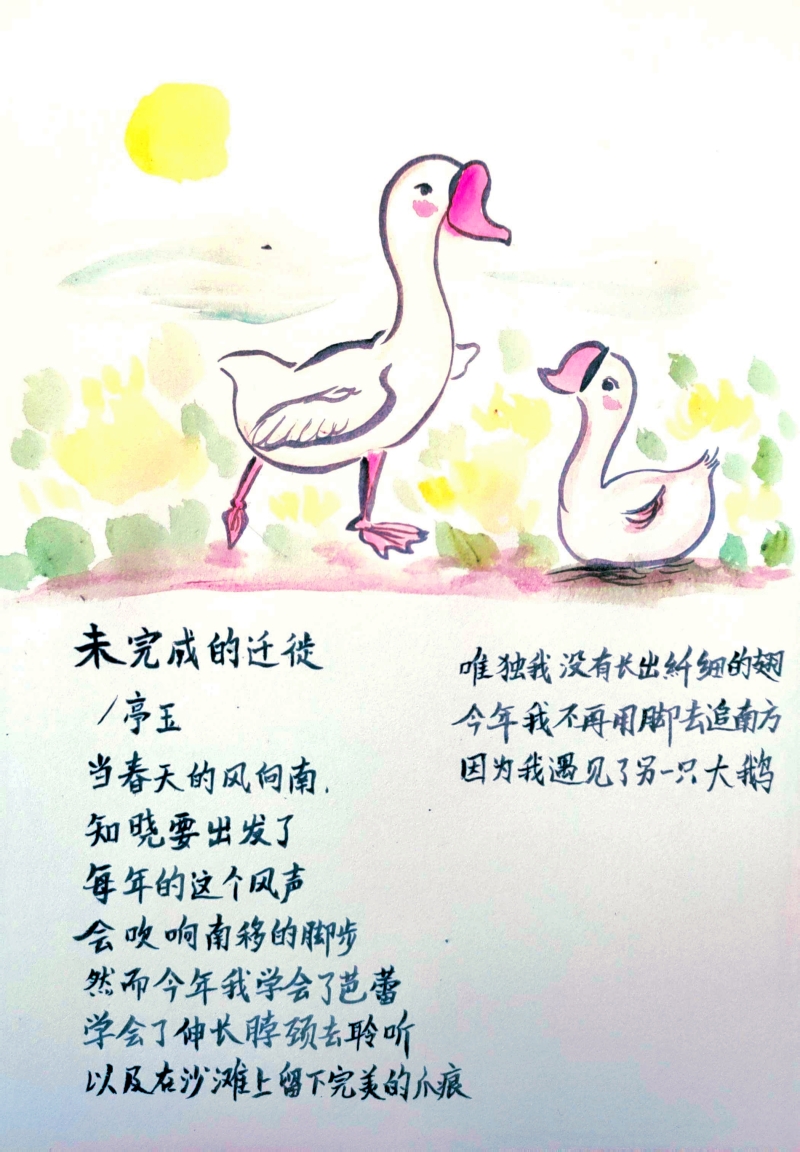 未完成的迁徙
/亭玉
当春天的风向南.
知晓要出发了
每年的这个风声
会吹响南移的脚步
然而今年我学会了芭蕾
学会了伸长脖颈去聆听
以及在沙滩上留下完美的爪痕
唯独我没有长出纤细的翅
今年我不再用脚去追南方
因为我遇见了另一只大鹅